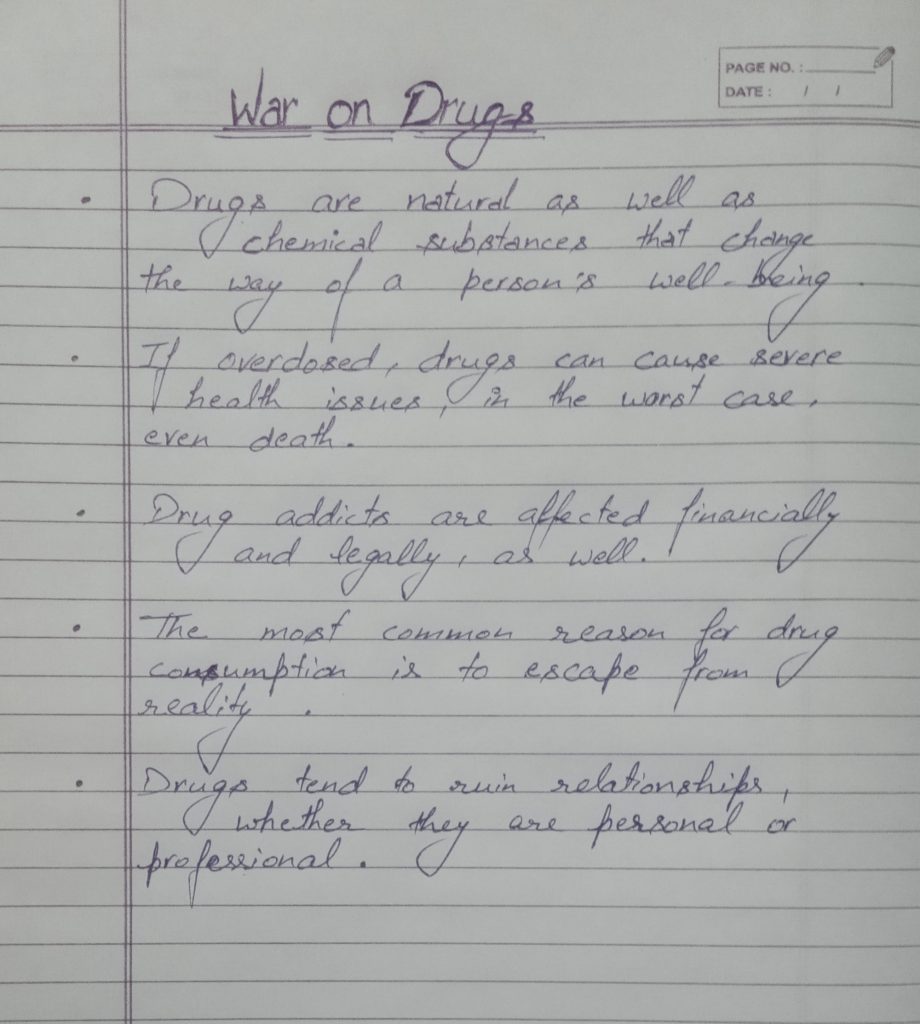 PAGE NO. :
DATE : / /
War on Drugs
• Drugs are natural as well as
chemical substances that change
the way of a person's well-being.
• If overdosed, drugs can cause severe
health issues, in the worst case,
even death.
• Drug addicts are affected financially
and legally, as well.
• The most common reason for drug
consumption is to escape from
reality.
• Drugs tend to ruin relationships,
whether they are personal or
professional.